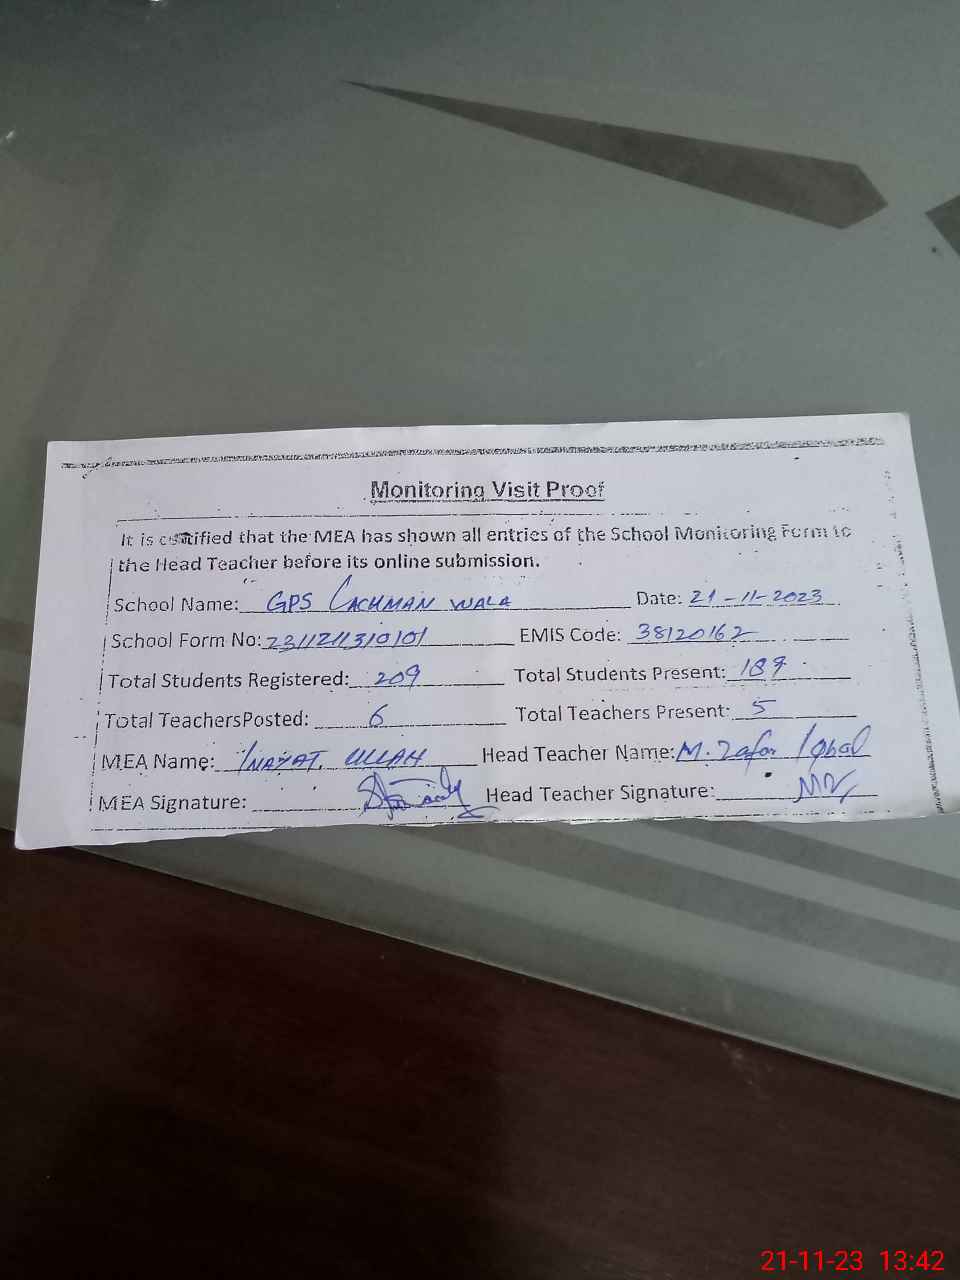 Monitoring Visit Proof
It is certified that the MEA has shown all entries of the School Monitoring Form to
the Head Teacher before its online submission.
School Name: GPS LACHMAN WALA Date: 21-11-2023
School Form No: 231121130101 EMIS Code: 38120162
Total Students Registered: 209 Total Students Present: 189
Total TeachersPosted: 6 Total Teachers Present: 5
MEA Name: INAYAT ULLAH Head Teacher Name: M. Zafar Iqbal
MEA Signature: Head Teacher Signature:
21-11-23 13:42